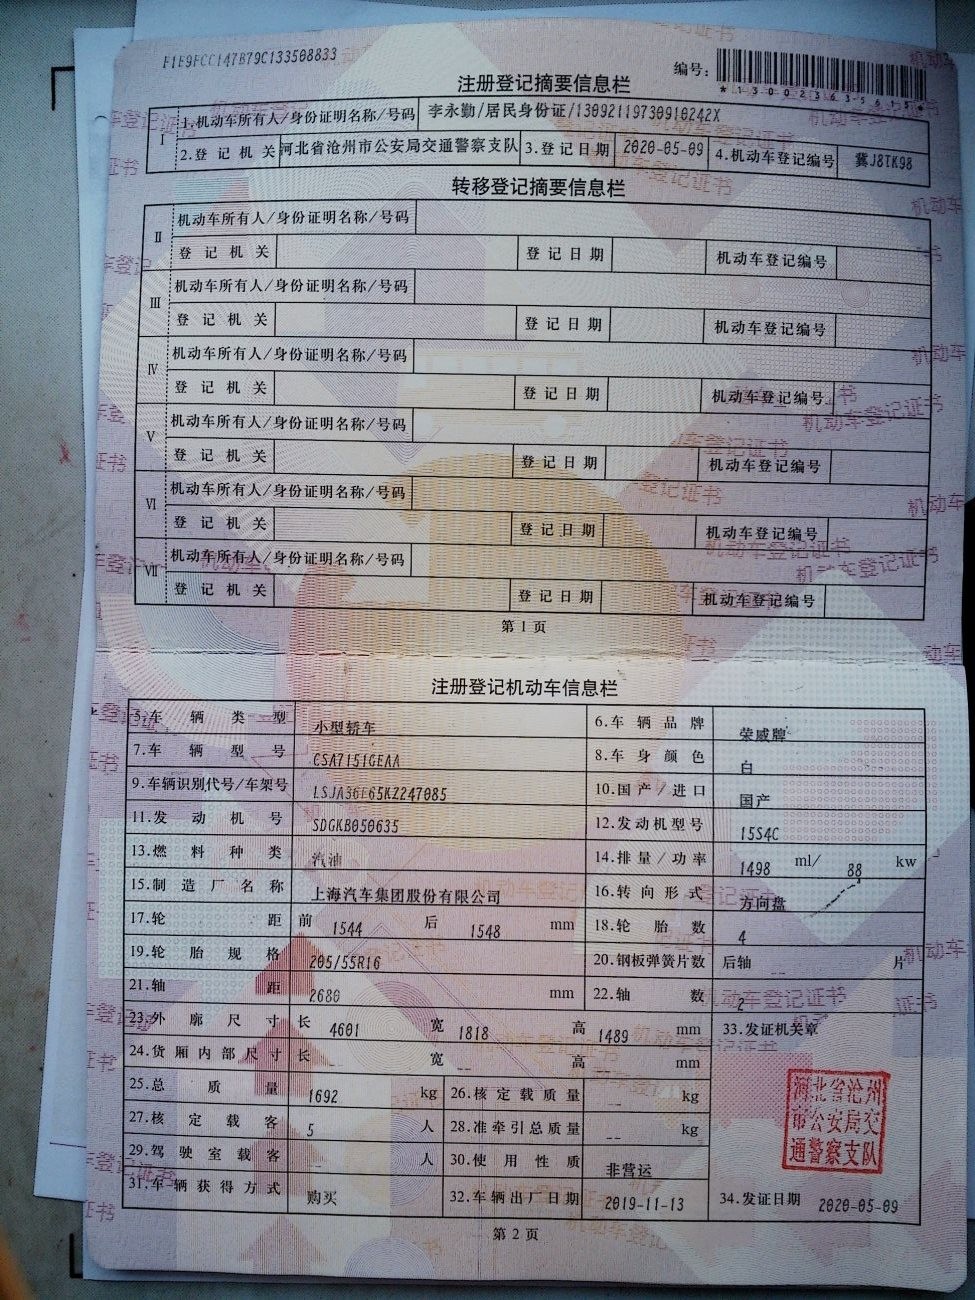 F1E9FCC147B79C133508833
编号：
*130023635615*
注册登记摘要信息栏
Ⅰ 1.机动车所有人/身份证明名称/号码 李永勤/居民身份证/13092119730910242X
2.登记机关 河北省沧州市公安局交通警察支队 3.登记日期 2020-05-09 4.机动车登记编号 冀J8TK98
转移登记摘要信息栏
Ⅱ 机动车所有人/身份证明名称/号码
登记机关 登记日期 机动车登记编号
Ⅲ 机动车所有人/身份证明名称/号码
登记机关 登记日期 机动车登记编号
Ⅳ 机动车所有人/身份证明名称/号码
登记机关 登记日期 机动车登记编号
Ⅴ 机动车所有人/身份证明名称/号码
登记机关 登记日期 机动车登记编号
Ⅵ 机动车所有人/身份证明名称/号码
登记机关 登记日期 机动车登记编号
Ⅶ 机动车所有人/身份证明名称/号码
登记机关 登记日期 机动车登记编号
第1页
注册登记机动车信息栏
5.车辆类型 小型轿车 6.车辆品牌 荣威牌
7.车辆型号 CSA7151GEAA 8.车身颜色 白
9.车辆识别代号/车架号 LSJA36E65KZ247085 10.国产/进口 国产
11.发动机号 SDGKB050635 12.发动机型号 15S4C
13.燃料种类 汽油 14.排量/功率 1498 ml/ 88 kw
15.制造厂名称 上海汽车集团股份有限公司 16.转向形式 方向盘
17.轮距 前 1544 后 1548 mm 18.轮胎数 4
19.轮胎规格 205/55R16 20.钢板弹簧片数 后轴 -- 片
21.轴距 2680 mm 22.轴数 2
23.外廓尺寸 长 4601 宽 1818 高 1489 mm 33.发证机关章
24.货厢内部尺寸 长 -- 宽 -- 高 -- mm
25.总质量 1692 kg 26.核定载质量 -- kg
27.核定载客 5 人 28.准牵引总质量 -- kg
29.驾驶室载客 -- 人 30.使用性质 非营运
31.车辆获得方式 购买 32.车辆出厂日期 2019-11-13 34.发证日期 2020-05-09
河北省沧州
市公安局交
通警察支队
第2页